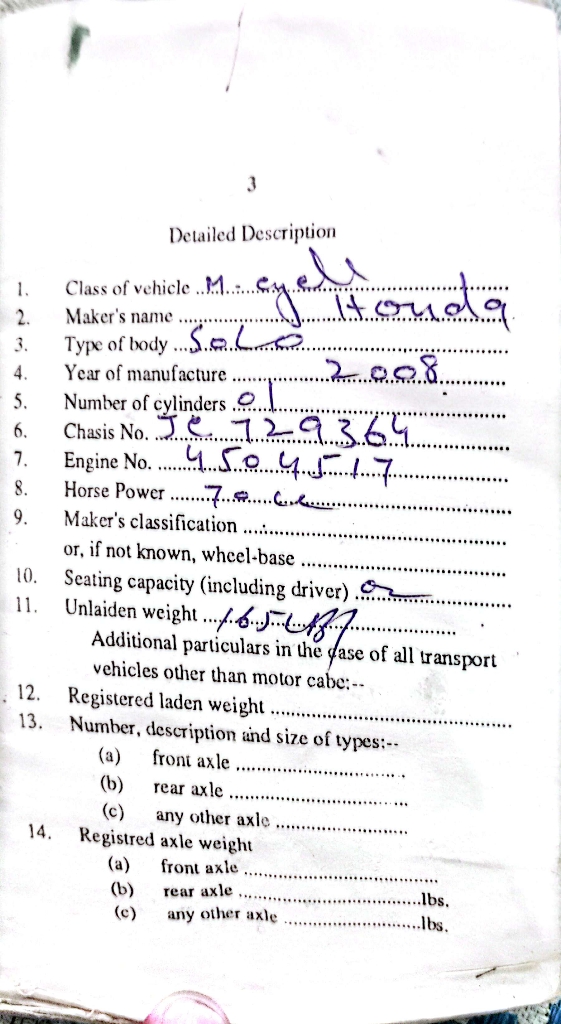 3
Detailed Description
1. Class of vehicle ..M.-..cycll
2. Maker's name .................... Honda
3. Type of body ...SoLo
4. Year of manufacture .................2008
5. Number of cylinders .01
6. Chasis No. Je 729364
7. Engine No. ......4504517
8. Horse Power ........70 cc
9. Maker's classification ....:
or, if not known, wheel-base
10. Seating capacity (including driver) .02
11. Unlaiden weight ...165
Additional particulars in the case of all transport
vehicles other than motor cabe:--
12. Registered laden weight
13. Number, description and size of types:--
(a) front axle
(b) rear axle
(c) any other axle
14. Registred axle weight
(a) front axle
(b) rear axle ..............................lbs.
(c) any other axle ........................lbs.